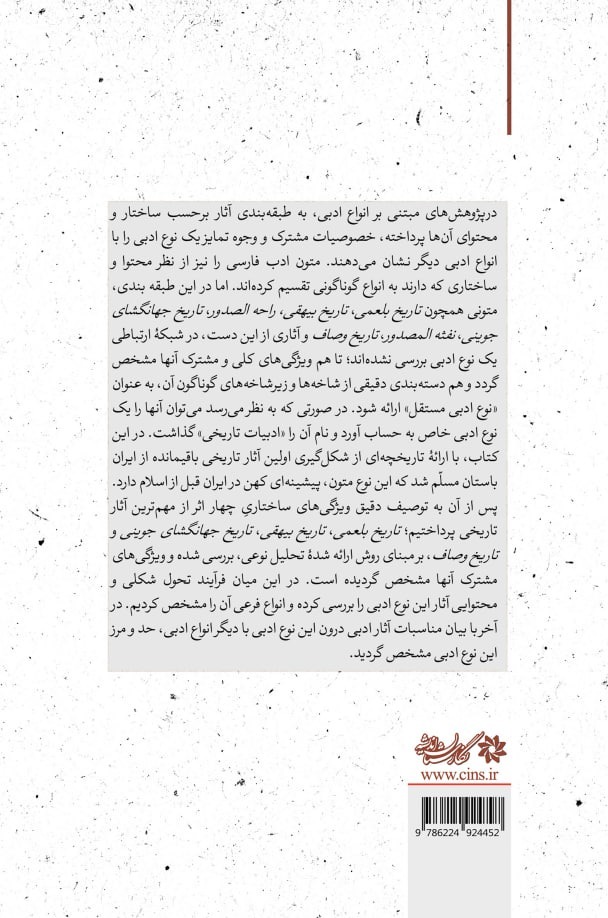 درپژوهش‌های مبتنی بر انواع ادبی، به طبقه‌بندی آثار برحسب ساختار و
محتوای آن‌ها پرداخته، خصوصیات مشترک و وجوه تمایز یک نوع ادبی را با
انواع ادبی دیگر نشان می‌دهند. متون ادب فارسی را نیز از نظر محتوا و
ساختاری که دارند به انواع گوناگونی تقسیم کرده‌اند. اما در این طبقه بندی،
متونی همچون تاریخ بلعمی، تاریخ بیهقی، راحه الصدور، تاریخ جهانگشای
جوینی، نفثه المصدور، تاریخ وصاف و آثاری از این دست، در شبکهٔ ارتباطی
یک نوع ادبی بررسی نشده‌اند؛ تا هم ویژگی‌های کلی و مشترک آنها مشخص
گردد و هم دسته‌بندی دقیقی از شاخه‌ها و زیرشاخه‌های گوناگون آن، به عنوان
«نوع ادبی مستقل» ارائه شود. در صورتی که به نظر می‌رسد می‌توان آنها را یک
نوع ادبی خاص به حساب آورد و نام آن را «ادبیات تاریخی» گذاشت. در این
کتاب، با ارائهٔ تاریخچه‌ای از شکل‌گیری اولین آثار تاریخی باقیمانده از ایران
باستان مسلّم شد که این نوع متون، پیشینه‌ای کهن در ایران قبل از اسلام دارد.
پس از آن به توصیف دقیق ویژگی‌های ساختاریِ چهار اثر از مهم‌ترین آثار
تاریخی پرداختیم؛ تاریخ بلعمی، تاریخ بیهقی، تاریخ جهانگشای جوینی و
تاریخ وصاف، بر مبنای روش ارائه شدهٔ تحلیل نوعی، بررسی شده و ویژگی‌های
مشترک آنها مشخص گردیده است. در این میان فرآیند تحول شکلی و
محتوایی آثار این نوع ادبی را بررسی کرده و انواع فرعی آن را مشخص کردیم. در
آخر با بیان مناسبات آثار ادبی درون این نوع ادبی با دیگر انواع ادبی، حد و مرز
این نوع ادبی مشخص گردید.
نگارستان اندیشه
www.cins.ir
9 786224 924452